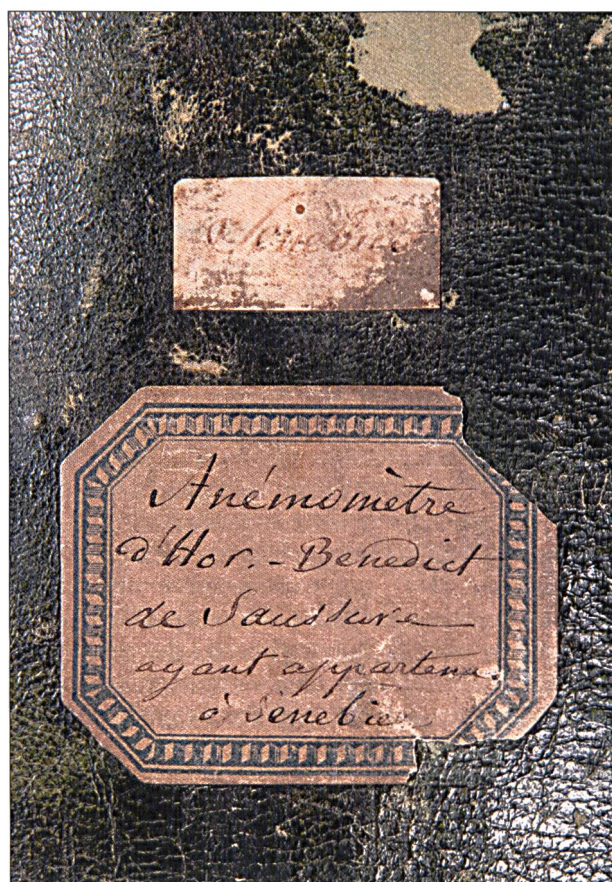 Senebier
Anémomètre
d'Hor. - Bénedict
de Saussure
ayant appartenu
à Senebier